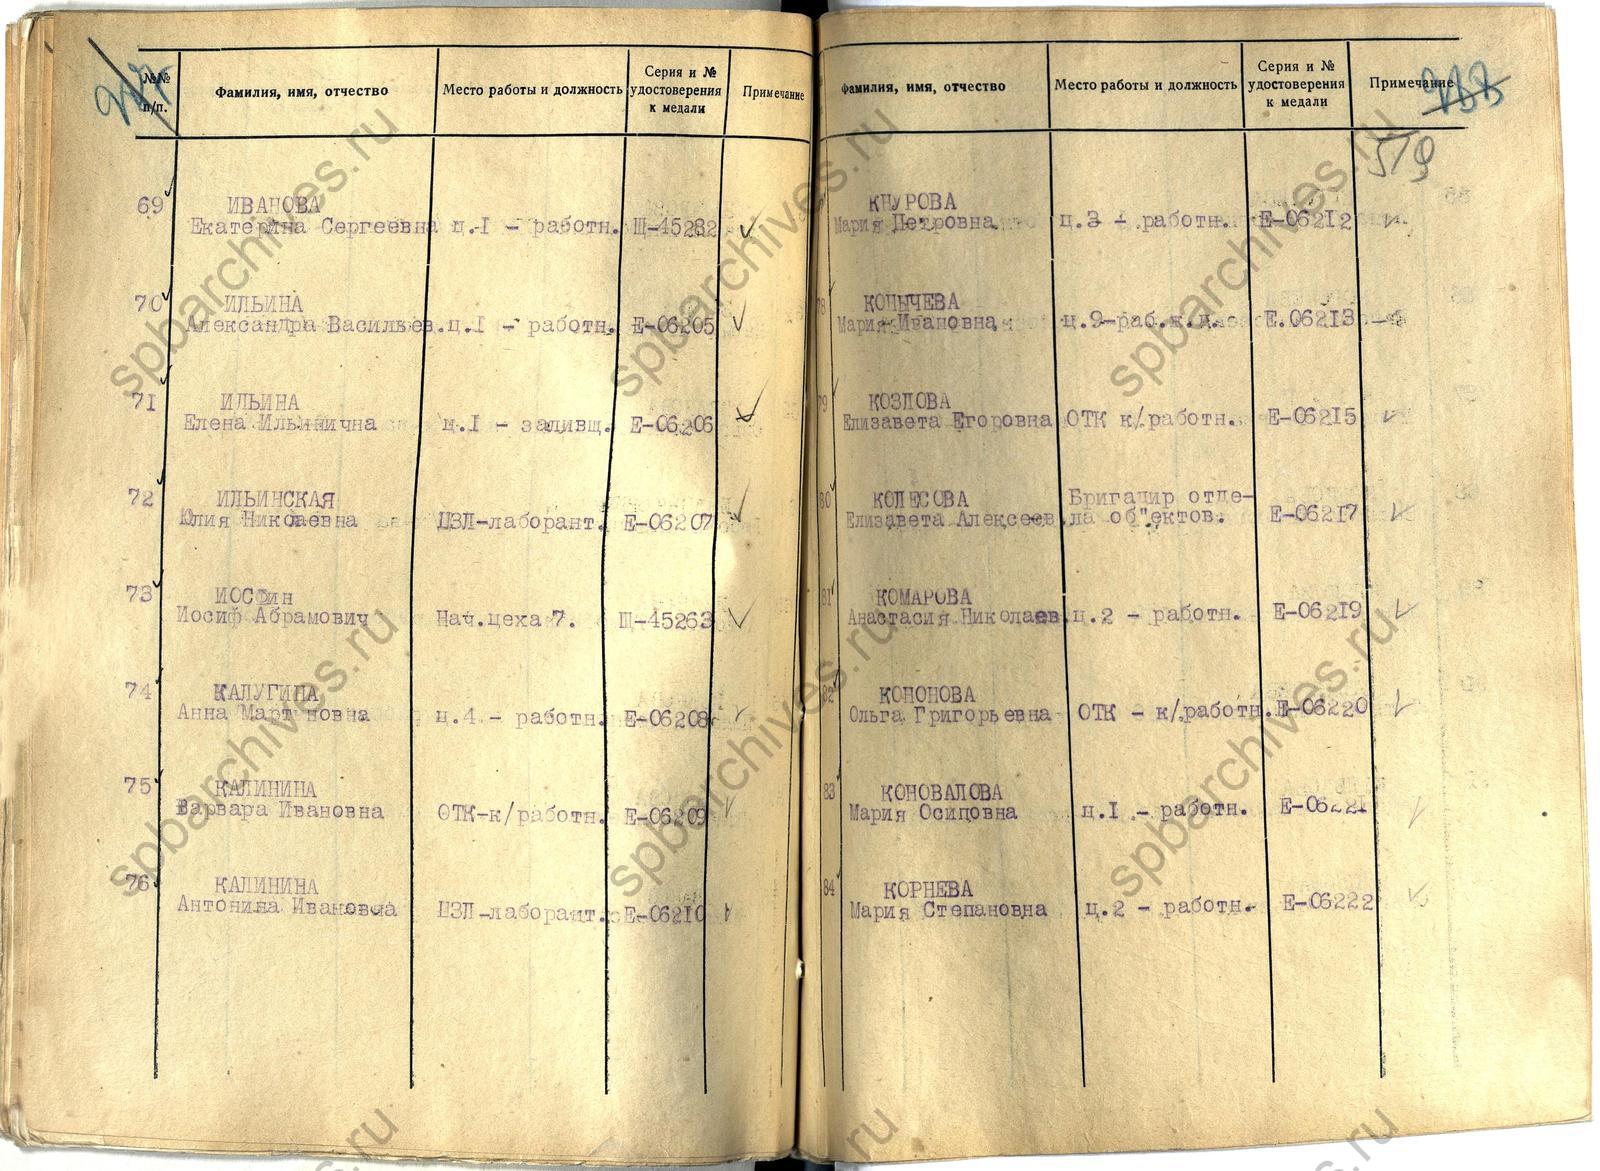 №№ п/п.
Фамилия, имя, отчество
Место работы и должность
Серия и №
удостоверения
к медали
Примечание
69
ИВАНОВА
Екатерина Сергеевна ц.I - работн. Щ-45282
70
ИЛЬИНА
Александра Васильев. ц.I - работн. Е-06205
71
ИЛЬИНА
Елена Ильинична ц.I - заливщ. Е-06206
72
ИЛЬИНСКАЯ
Юлия Николаевна ЦЗЛ-лаборант. Е-06207
73
ИОСФин
Иосиф Абрамович Нач.цеха 7. Щ-45263
74
КАЛУГИНА
Анна Мартыновна ц.4 - работн. Е-06208
75
КАЛИНИНА
Варвара Ивановна ОТК-к/работн. Е-06209
76
КАЛИНИНА
Антонина Ивановна ЦЗЛ-лаборант. Е-06210
Фамилия, имя, отчество
Место работы и должность
Серия и №
удостоверения
к медали
Примечание
519
КНУРОВА
Мария Петровна ц.3 - работн. Е-06212
78
КОПЫЧЕВА
Мария Ивановна ц.9-раб.ж.д. Е.06213
79
КОЗЛОВА
Елизавета Егоровна ОТК к/работн. Е-06215
80
КОЛЕСОВА
Бригадир отде-
Елизавета Алексеев. ла об"ектов. Е-06217
81
КОМАРОВА
Анастасия Николаев. ц.2 - работн. Е-06219
82
КОНОНОВА
Ольга Григорьевна ОТК - к/работн. Е-06220
83
КОНОВАЛОВА
Мария Осиповна ц.I - работн. Е-06221
84
КОРНЕВА
Мария Степановна ц.2 - работн. Е-06222
spbarchives.ru
spbarchives.ru
spbarchives.ru
spbarchives.ru
spbarchives.ru
spbarchives.ru